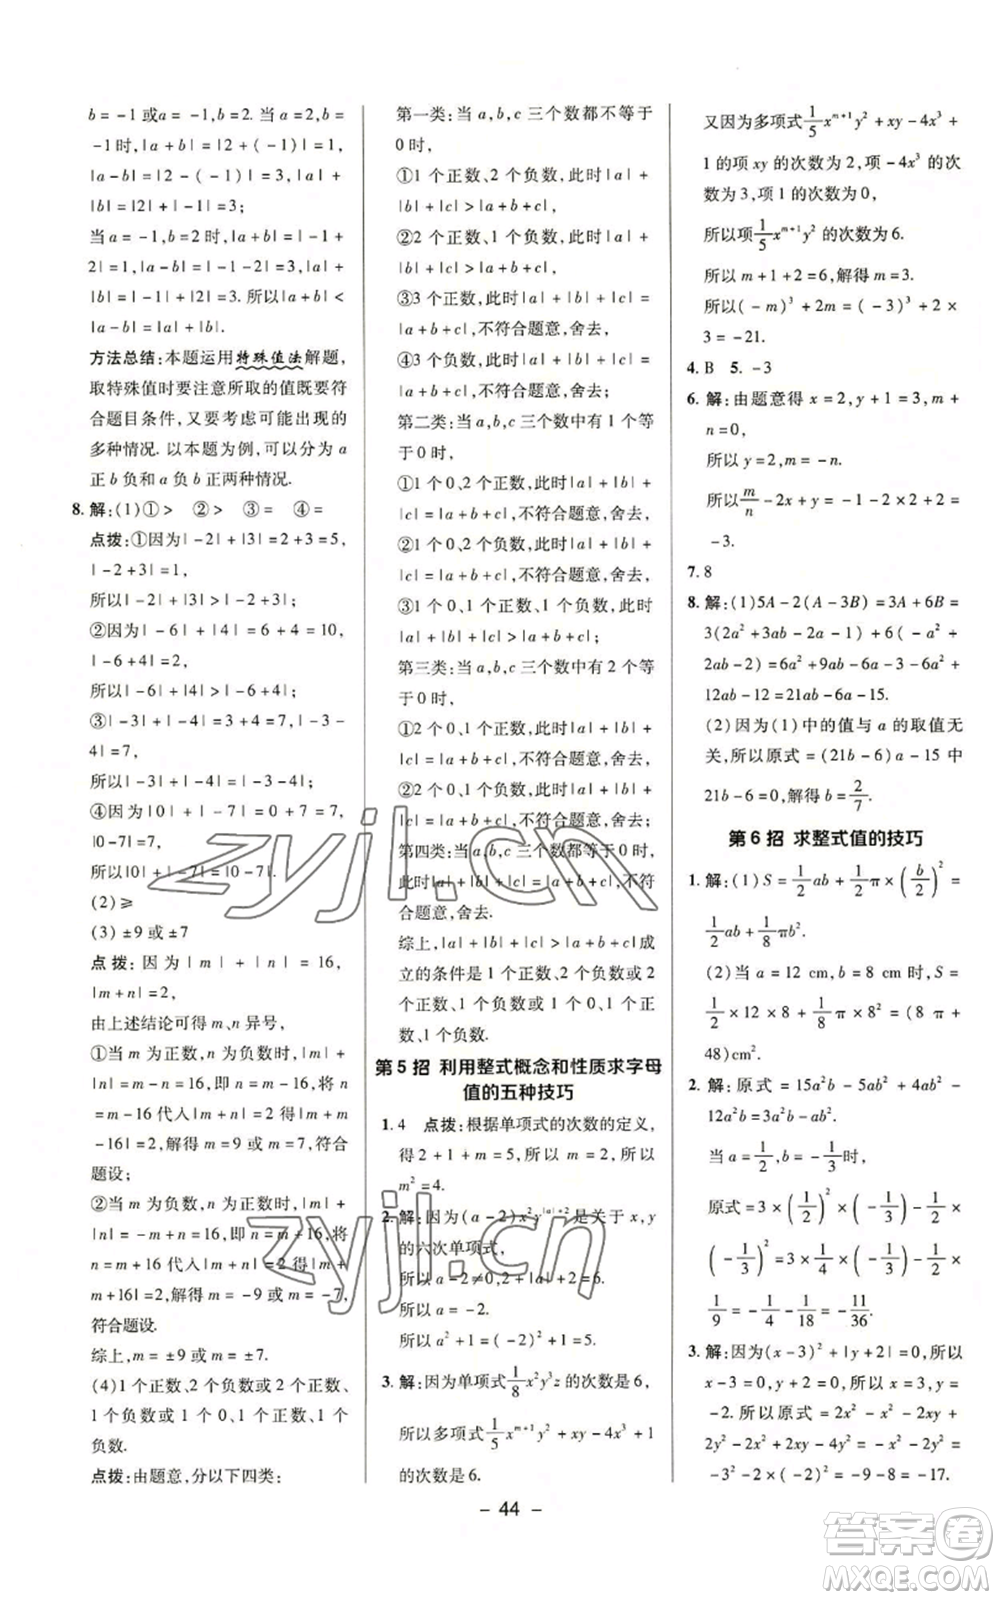 b = -1 或a = -1,b = 2. 当 a = 2,b =
-1时,|a + b| = |2 + (-1)| = 1,
|a - b| = |2 - (-1)| = 3,|a| +
|b| = |2| + |-1| = 3;
当 a = -1,b = 2 时,|a + b| = |-1 +
2| = 1,|a - b| = |-1 - 2| = 3,|a| +
|b| = |-1| + |2| = 3. 所以|a + b| <
|a - b| = |a| + |b|.
方法总结:本题运用特殊值法解题,
取特殊值时要注意所取的值既要符
合题目条件,又要考虑可能出现的
多种情况. 以本题为例,可以分为 a
正 b 负和 a 负 b 正两种情况.
8. 解:(1)①> ②> ③= ④=
点拨:①因为|-2| + |3| = 2 + 3 = 5,
|-2 + 3| = 1,
所以|-2| + |3| > |-2 + 3|;
②因为|-6| + |4| = 6 + 4 = 10,
|-6 + 4| = 2,
所以|-6| + |4| > |-6 + 4|;
③|-3| + |-4| = 3 + 4 = 7,|-3 +
(-4)| = 7,
所以|-3| + |-4| = |-3 + (-4)|;
④因为|0| + |-7| = 0 + 7 = 7,
|0 - 7| = 7,
所以|0| + |-7| = |0 - 7|.
(2)≥
(3) ±9 或 ±7
点拨:因为 |m| + |n| = 16,
|m + n| = 2,
由上述结论可得 m、n 异号,
①当 m 为正数,n 为负数时,|m| +
|n| = m - n = 16,即 n = m - 16,将
n = m - 16 代入|m + n| = 2 得|m + m
-16| = 2,解得 m = 9 或 m = 7,符合
题设;
②当 m 为负数,n 为正数时,|m| +
|n| = -m + n = 16,即 n = m + 16,将
n = m + 16 代入|m + n| = 2 得|m +
m + 16| = 2,解得 m = -9 或 m = -7,
符合题设.
综上,m = ±9 或 m = ±7.
(4)1 个正数、2 个负数或 2 个正数、
1 个负数或 1 个 0、1 个正数、1 个
负数.
点拨:由题意,分以下四类:
第一类:当 a,b,c 三个数都不等于
0 时,
①1 个正数、2 个负数,此时|a| +
|b| + |c| > |a + b + c|,
②2 个正数、1 个负数,此时|a| +
|b| + |c| > |a + b + c|,
③3 个正数,此时|a| + |b| + |c| =
|a + b + c|,不符合题意,舍去,
④3 个负数,此时|a| + |b| + |c| =
|a + b + c|,不符合题意,舍去;
第二类:当 a,b,c 三个数中有 1 个等
于 0 时,
①1 个 0、2 个正数,此时|a| + |b| +
|c| = |a + b + c|,不符合题意,舍去,
②1 个 0、2 个负数,此时|a| + |b| +
|c| = |a + b + c|,不符合题意,舍去,
③1 个 0、1 个正数、1 个负数,此时
|a| + |b| + |c| > |a + b + c|;
第三类:当 a,b,c 三个数中有 2 个等
于 0 时,
①2 个 0、1 个正数,此时|a| + |b| +
|c| = |a + b + c|,不符合题意,舍去,
②2 个 0、1 个负数,此时|a| + |b| +
|c| = |a + b + c|,不符合题意,舍去;
第四类:当 a,b,c 三个数都为 0 时,
此时|a| + |b| + |c| = |a + b + c|,不符
合题意,舍去.
综上,|a| + |b| + |c| > |a + b + c|成
立的条件是 1 个正数、2 个负数或 2
个正数、1 个负数或 1 个 0、1 个正
数、1 个负数.
第 5 招 利用整式概念和性质求字母
值的五种技巧
1. 4 点拨:根据单项式的次数的定义,
得 2 + 1 + m = 5,所以 m = 2,所以
m² = 4.
2. 解:因为(a - 2)x²y^{|a|+2}是关于 x,y
的六次单项式,
所以 a - 2≠0,2 + |a| + 2 = 6.
所以 a = -2.
所以 a² + 1 = (-2)² + 1 = 5.
3. 解:因为单项式\frac{1}{8}x²y³z 的次数是 6,
所以多项式\frac{1}{5}x^{m+1}y² + xy - 4x³ + 1
的次数是 6.
又因为多项式\frac{1}{5}x^{m+1}y² + xy - 4x³ +
1 的项 xy 的次数为 2,项 -4x³ 的次
数为 3,项 1 的次数为 0,
所以项\frac{1}{5}x^{m+1}y² 的次数为 6.
所以 m + 1 + 2 = 6,解得 m = 3.
所以(-m)³ + 2m = (-3)³ + 2 ×
3 = -21.
4. B 5. -3
6. 解:由题意得 x = 2,y + 1 = 3,m +
n = 0,
所以 y = 2,m = -n.
所以\frac{m}{n} - 2x + y = -1 - 2×2 + 2 =
-3.
7. 8
8. 解:(1)5A - 2(A - 3B) = 3A + 6B =
3(2a² + 3ab - 2a - 1) + 6(-a² +
2ab - 2) = 6a² + 9ab - 6a - 3 - 6a² +
12ab - 12 = 21ab - 6a - 15.
(2)因为(1)中的值与 a 的取值无
关,所以原式 = (21b - 6)a - 15 中
21b - 6 = 0,解得 b = \frac{2}{7}.
第 6 招 求整式值的技巧
1. 解:(1)S = \frac{1}{2}ab + \frac{1}{2}π × (\frac{b}{2})² =
\frac{1}{2}ab + \frac{1}{8}πb².
(2)当 a = 12 cm,b = 8 cm时,S =
\frac{1}{2} × 12 × 8 + \frac{1}{8} π × 8² = (8π +
48)cm².
2. 解:原式 = 15a²b - 5ab² + 4ab² -
12a²b = 3a²b - ab².
当 a = \frac{1}{2},b = -\frac{1}{3}时,
原式 = 3 × (\frac{1}{2})² × (-\frac{1}{3}) - \frac{1}{2} ×
(-\frac{1}{3})² = 3 × \frac{1}{4} × (-\frac{1}{3}) - \frac{1}{2} ×
\frac{1}{9} = -\frac{1}{4} - \frac{1}{18} = -\frac{11}{36}.
3. 解:因为(x - 3)² + |y + 2| = 0,所以
x - 3 = 0,y + 2 = 0,所以 x = 3,y =
-2. 所以原式 = 2x² + 2x² - 2xy +
2y² - 3x² + 3xy - 3y² = x² + xy - y²
= 3² + 3×(-2) - (-2)² = -1.
- 44 -
zyjl.cn
zyjl.cn
答案圈
MXQE.COM